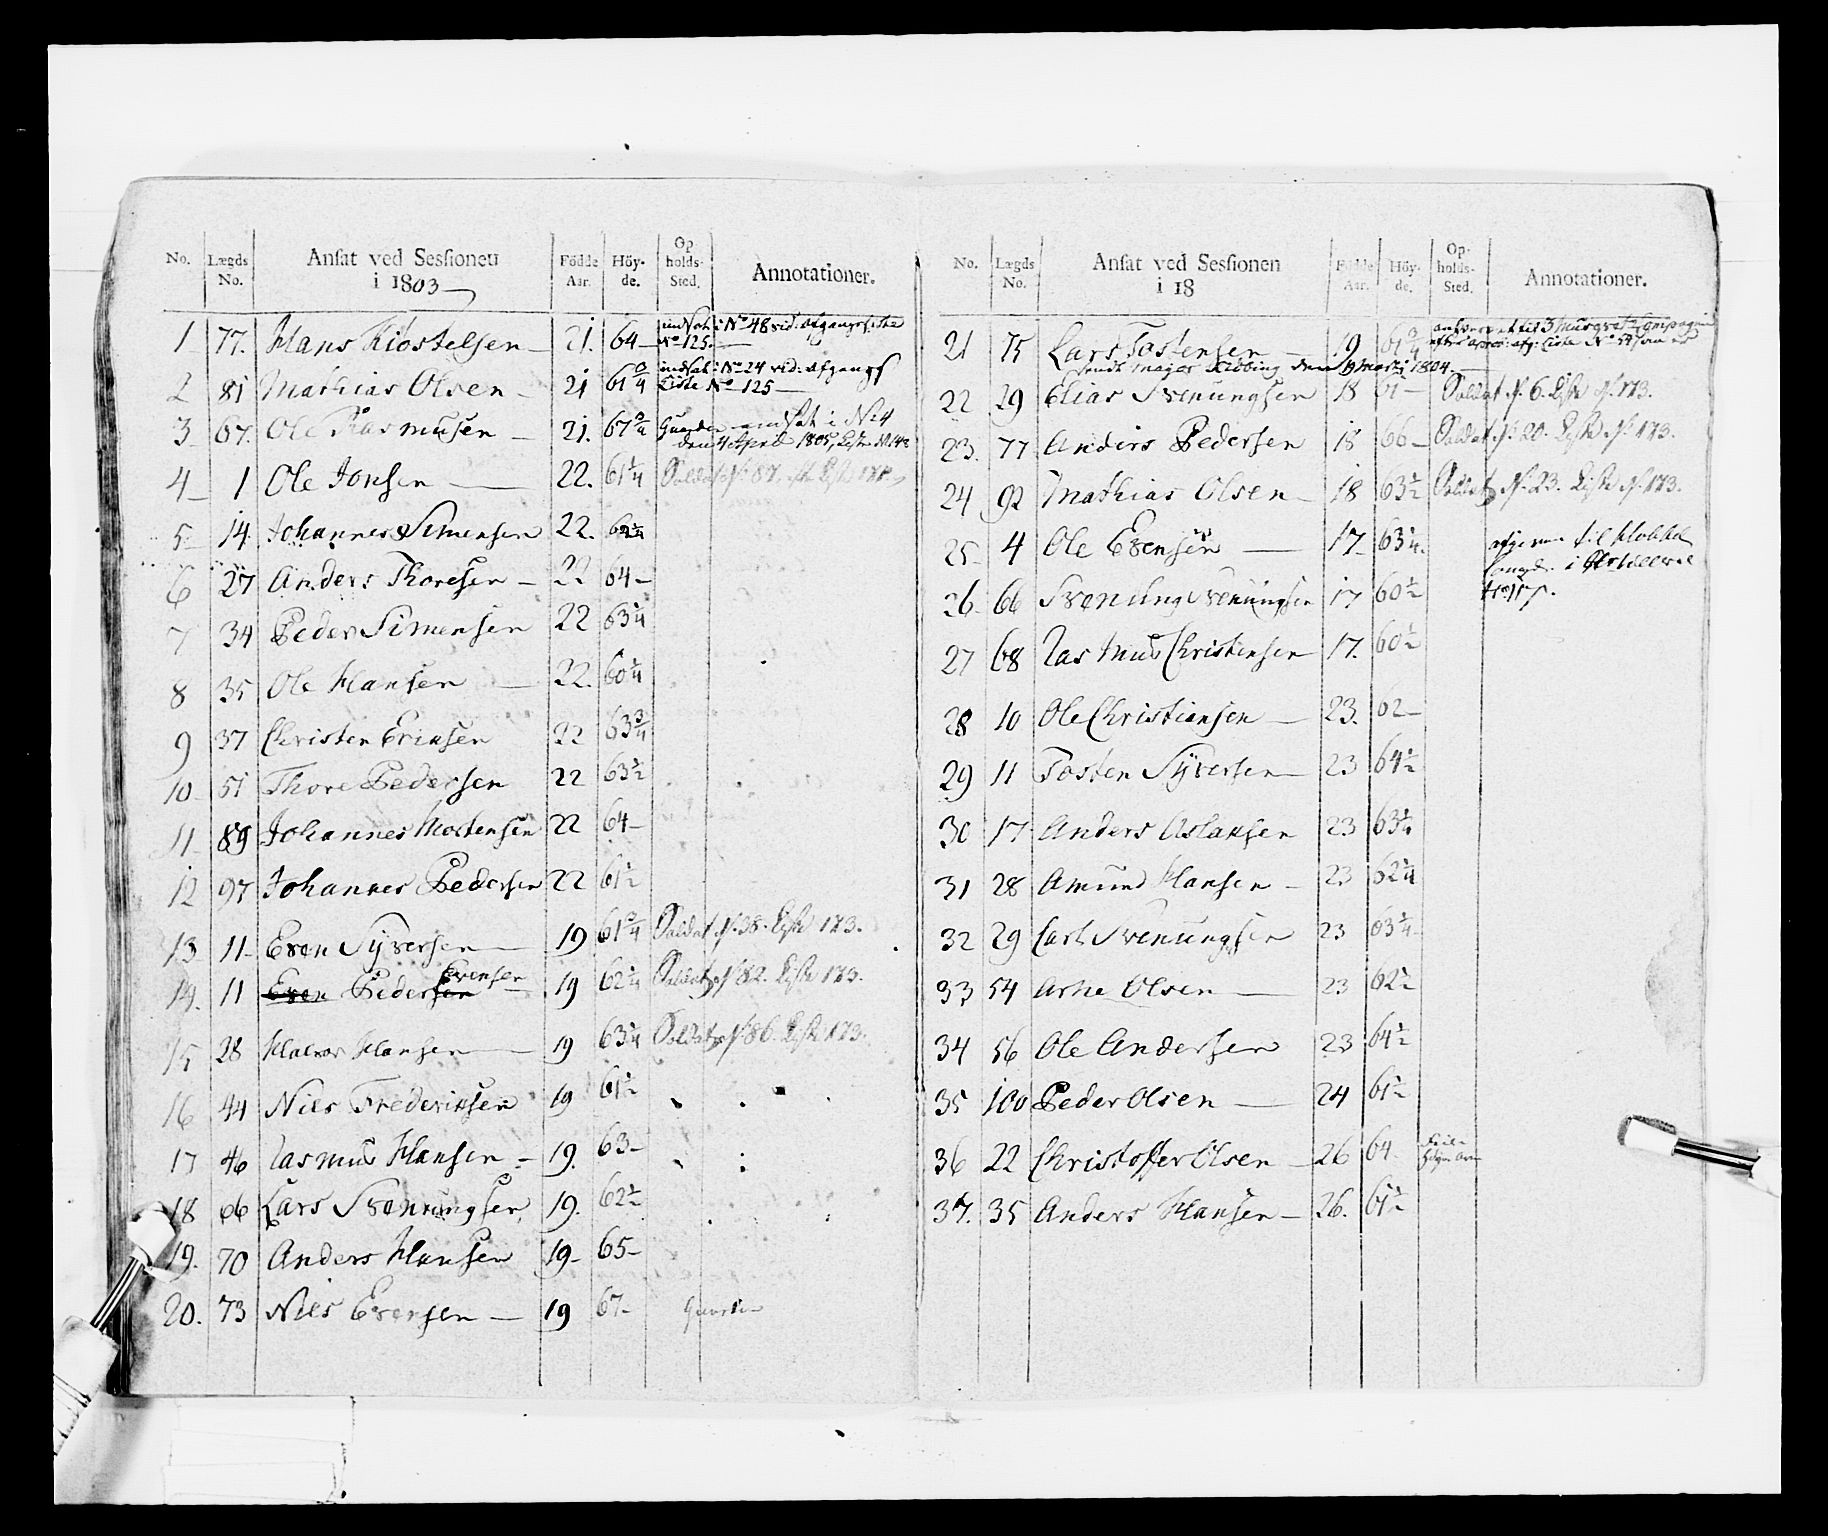 No. Lægds No. Ansat ved Sessionen i 1803 Födde Aar. Höy-de. Op-holds-Sted. Annotationer.
1 77. Hans Kiostelsen 21. 64 indsat i No 48 vid: Afgangs Liste No 125.
2 81 Mathias Olsen 21 61 3/4 indsat i No 24 vid: Afgangs Liste No 125
3 67. Ole Rasmusen 21. 67 3/4 Guarden indsat i No 4 den 4 April 1805, Liste No 142
4 1 Ole Jonsen 22. 61 1/4 Soldat No 87.
5 14. Johannes Simensen 22.
6 27 Anders Thoresen 22 64
7 34 Peder Simensen 22 63 1/4
8 35 Ole Hansen 22. 60 1/4
9 37 Christen Ericksen 22 63 3/4
10 51 Thore Pedersen 22 63 1/2
11 89 Johannes Mortensen 22 64
12 97 Johannes Pedersen 22 61 1/2
13 11 Even Syversen 19 61 3/4 Soldat No 38. Liste 173.
14. 11 Even Pedersen Evensen 19 62 1/4 Soldat No 82. Liste 173.
15 28 Halvor Hansen 19 63 1/4 Soldat No 86. Liste 173.
16 44 Niels Frederiksen 19 61 1/2
17 46 Rasmus Hansen 19. 63
18 66 Lars Svenningsen 19. 62 1/2
19. 70 Anders Hansen 19 65
20. 73 Niels Evensen 19 67 Guarden
No. Lægds No. Ansat ved Sessionen i 18 Födde Aar. Höy-de. Op-holds-Sted. Annotationer.
21 75 Lars Tostensen 19 61 3/4 til 3 Musqveteer Compagnie Liste No
Major den 9 Marti 1804.
22 29 Elias Svenungsen 18 61 Soldat No 6. Liste No 173.
23. 77 Anders Pedersen 18 66 Soldat No 20. Liste No 173.
24 92 Mathias Olsen 18 63 1/2 Soldat No 23. Liste No 173.
25 4 Ole Evensen 17 63 1/4 til
26 66 Svenung Svenungsen 17 60 1/2
27 68 Rasmus Christensen 17. 60 1/2
28 10 Ole Christiansen 23. 62
29 11 Tosten Syversen 23 64 1/2
30 17 Anders Aslaksen 23 63 1/4
31 28 Amund Hansen 23 62 1/4
32 29 Carl Svenungsen 23 63 1/4
33 54 Arne Olsen 23 62 1/2
34 56 Ole Andersen 23 64 1/2
35 100 Peder Olsen 24 61 1/2
36 22 Christoffer Olsen 26 64
37. 35 Anders Hansen 26. 61 1/2